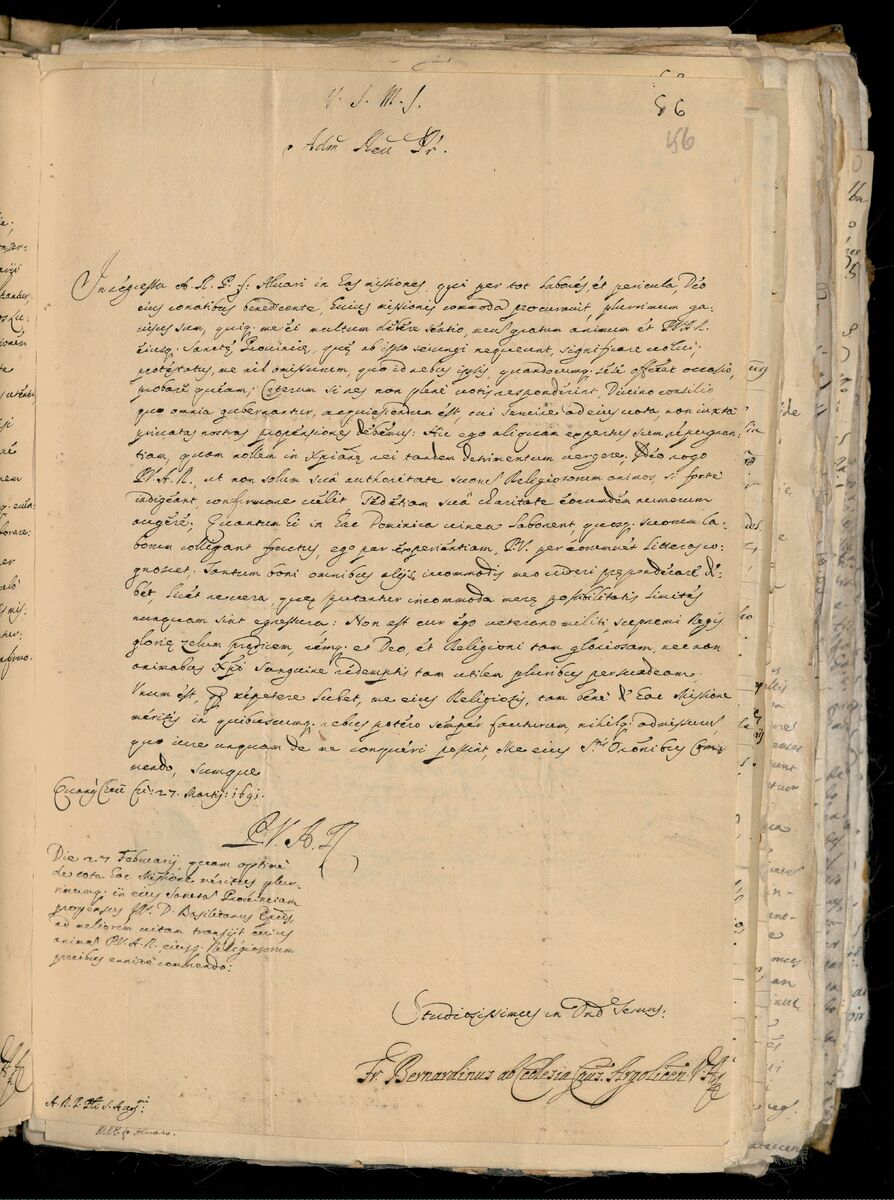 56
56
V. J. M. J.
Adm Reu Pr.
In regressu A. R. P. f: Aluari in has missiones, qui per tot labores, et pericula, Deo
eius conatibus benedicente, huius missionis commoda procurauit, plurimum ga-
uisus sum, quiq; me ei multum debere sentio, meu gratum animum et P.V.A.R.
eiusq; Sanctę Prouincię, quę ab ipso seiungi nequeunt, significare volui;
protestatus, me nil omissurum, quo id rebus ipsis, quandocumq; sese offeret occasio,
probare queam; Cęterum si res non plene votis responderint, Diuino consilio
quo omnia gubernantur, acquiescendum est, cui seruire ad eius vota non iuxta
priuatas nostras propensiones debemus: Hic ego aliquam expertus sum repugnan-
tiam, quam nollem in Xpianę rei tandem detrimentum vergere, Deo rogo
P.V.A.R. ut non solum suâ authoritate suorum Religiosorum animos, si forte
indigeant, confirmare velit sua charitate eorumdem numerum
augere; Quantum hi in hac Dominica vinea laborent, quosq; suorum la-
borum colligant fructus, ego per experientiam, P.V. per eorum litteras co-
gnoscet; Tantum boni omnibus alijs incommodis meo videri pręponderare de-
bet, licet reuera, quę putantur incommoda merę possibilitatis limites
nunquam sint egressura: Non est cur ego veterano militi supremi Regis
glorię zelum prędicem, remq; et Deo, et Religioni tam gloriosam, nec non
animabus Xpi Sanguine redemptis tam utilem pluribus persuadeam.
Vnum est, repetere lubet, me eius Religiosis, tam bene de hac Missione
meritis in quibuscumq; rebus potero semper fauturum, nihilq; admissurum,
quo iure unquam de me conqueri possint, Me eius Stis Oronibus Com-
mendo, sumque
Cuang Cheu fu: 27. Martij: 1691.
P. V. A. R.
Die 27 Februarij quam optime
de tota hac Missione meritus plu-
rimumq; in eius Sanctam Prouinciam
propensus D. Basilitanus Epus
ad meliorem vitam transijt cuius
animam P.V.A.R. eiusq; Religiosorum
precibus enixe commendo:
Studiosissimus in Dno Seruus:
Fr. Bernardinus ab Ecclesia Epus: Argolicen V. A.
A. R. P. S. Aug